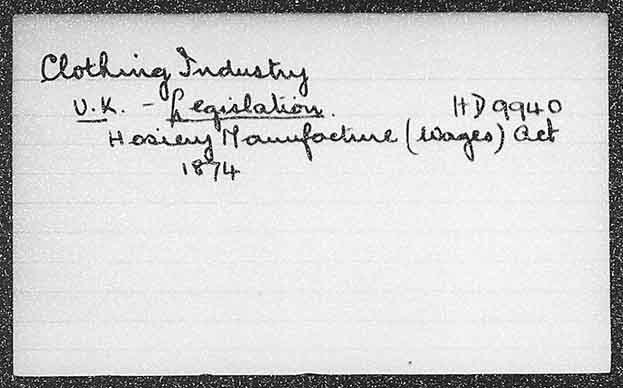 Clothing Industry
U.K. - Legislation. HD9940
Hosiery Manufacture (Wages) Act
1874